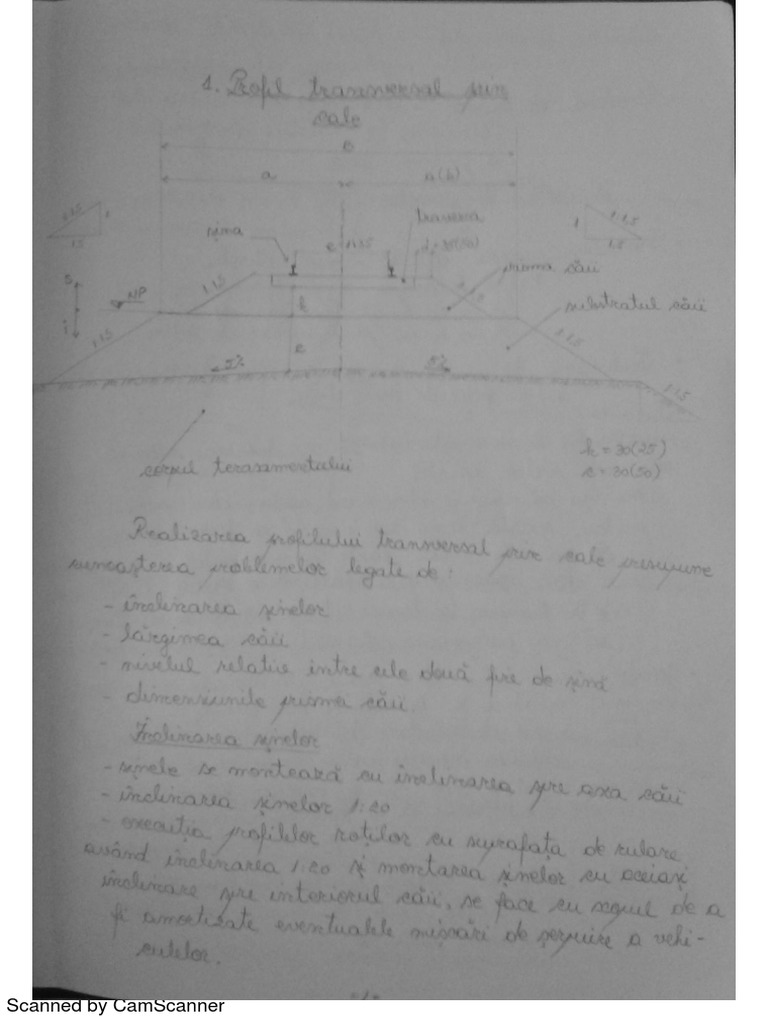 1. Profil transversal prin
cale
B
a
a(b)
1:1,5
1
1,5
1:1,5
1
1,5
traversa
șina
e
d=35(50)
prisma căii
1:1,5
S
NP
substratul căii
h
i
1:1,5
1:1,5
c
5%
5%
1:1,5
h = 30(25)
c = 30(50)
corpul terasamentului
Realizarea profilului transversal prin cale presupune
cunoașterea problemelor legate de:
- înclinarea șinelor
- lărgimea căii
- nivelul relativ între cele două fire de șină
- dimensiunile prismei căii.
Înclinarea șinelor
- șinele se montează cu înclinarea spre axa căii
- înclinarea șinelor 1:20
- execuția profilelor roților cu suprafața de rulare
având înclinarea 1:20 și montarea șinelor cu aceiași
înclinare spre interiorul căii, se face cu scopul de a
fi amortizate eventualele mișcări de șerpuire a vehi-
culelor.
-1-
Scanned by CamScanner